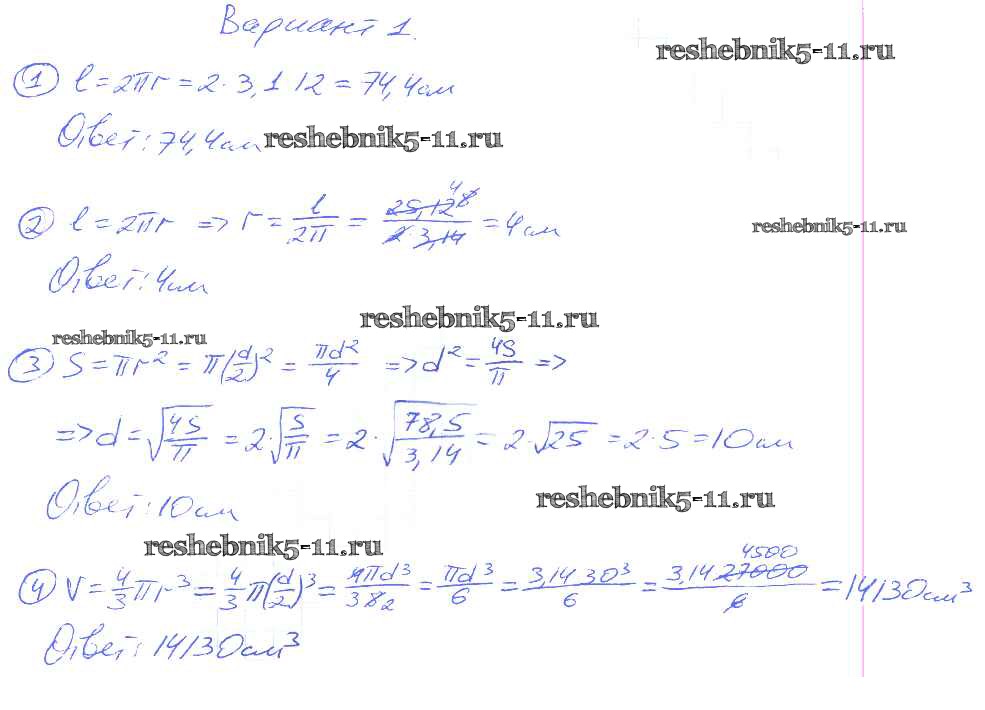 Вариант 1.
reshebnik5-11.ru
① l = 2πr = 2 · 3,1 12 = 74,4 см
Ответ: 74,4 см
reshebnik5-11.ru
② l = 2πr => r = l/2π = 25,12 8 4/2 3,14 = 4 см
reshebnik5-11.ru
Ответ: 4 см
reshebnik5-11.ru
reshebnik5-11.ru
③ S = πr² = π(d/2)² = πd²/4 => d² = 4S/π =>
=> d = √(4S/π) = 2·√(S/π) = 2·√(78,5/3,14) = 2·√25 = 2·5 = 10 см
Ответ: 10 см
reshebnik5-11.ru
reshebnik5-11.ru
④ V = 4/3 πr³ = 4/3 π(d/2)³ = 4πd³/3 8 2 = πd³/6 = 3,14 30³/6 = 3,14 27000 4500/6 = 14130 см³
Ответ: 14130 см³